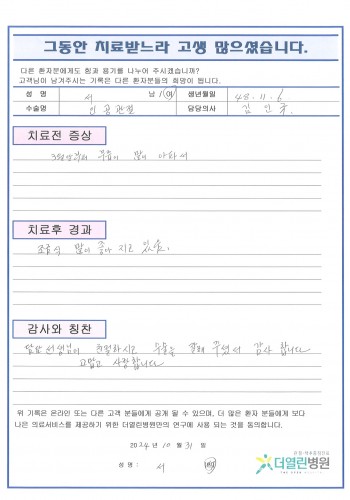 그동안 치료받느라 고생 많으셨습니다.
다른 환자분에게도 힘과 용기를 나누어 주시겠습니까?
고객님이 남겨주시는 기록은 다른 환자분들의 희망이 됩니다.
성 명 서 남 / 여 생년월일 48.11.6
수술명 인공관절 담당의사 김
치료전 증상
무릎이 많이 아파서
치료후 경과
조금씩 많이 좋아 지고 있음.
감사와 칭찬
담당선생님이 친절하시고 수술을 잘해 주셔서 감사 합니다
고맙고 사랑합니다
위 기록은 온라인 또는 다른 고객 분들에게 공개 될 수 있으며, 더 많은 환자 분들에게 보다
나은 의료서비스를 제공하기 위한 더열린병원만의 연구에 사용 되는 것을 동의합니다.
2024년 10 월 31 일
성 명 : 서
더열린병원